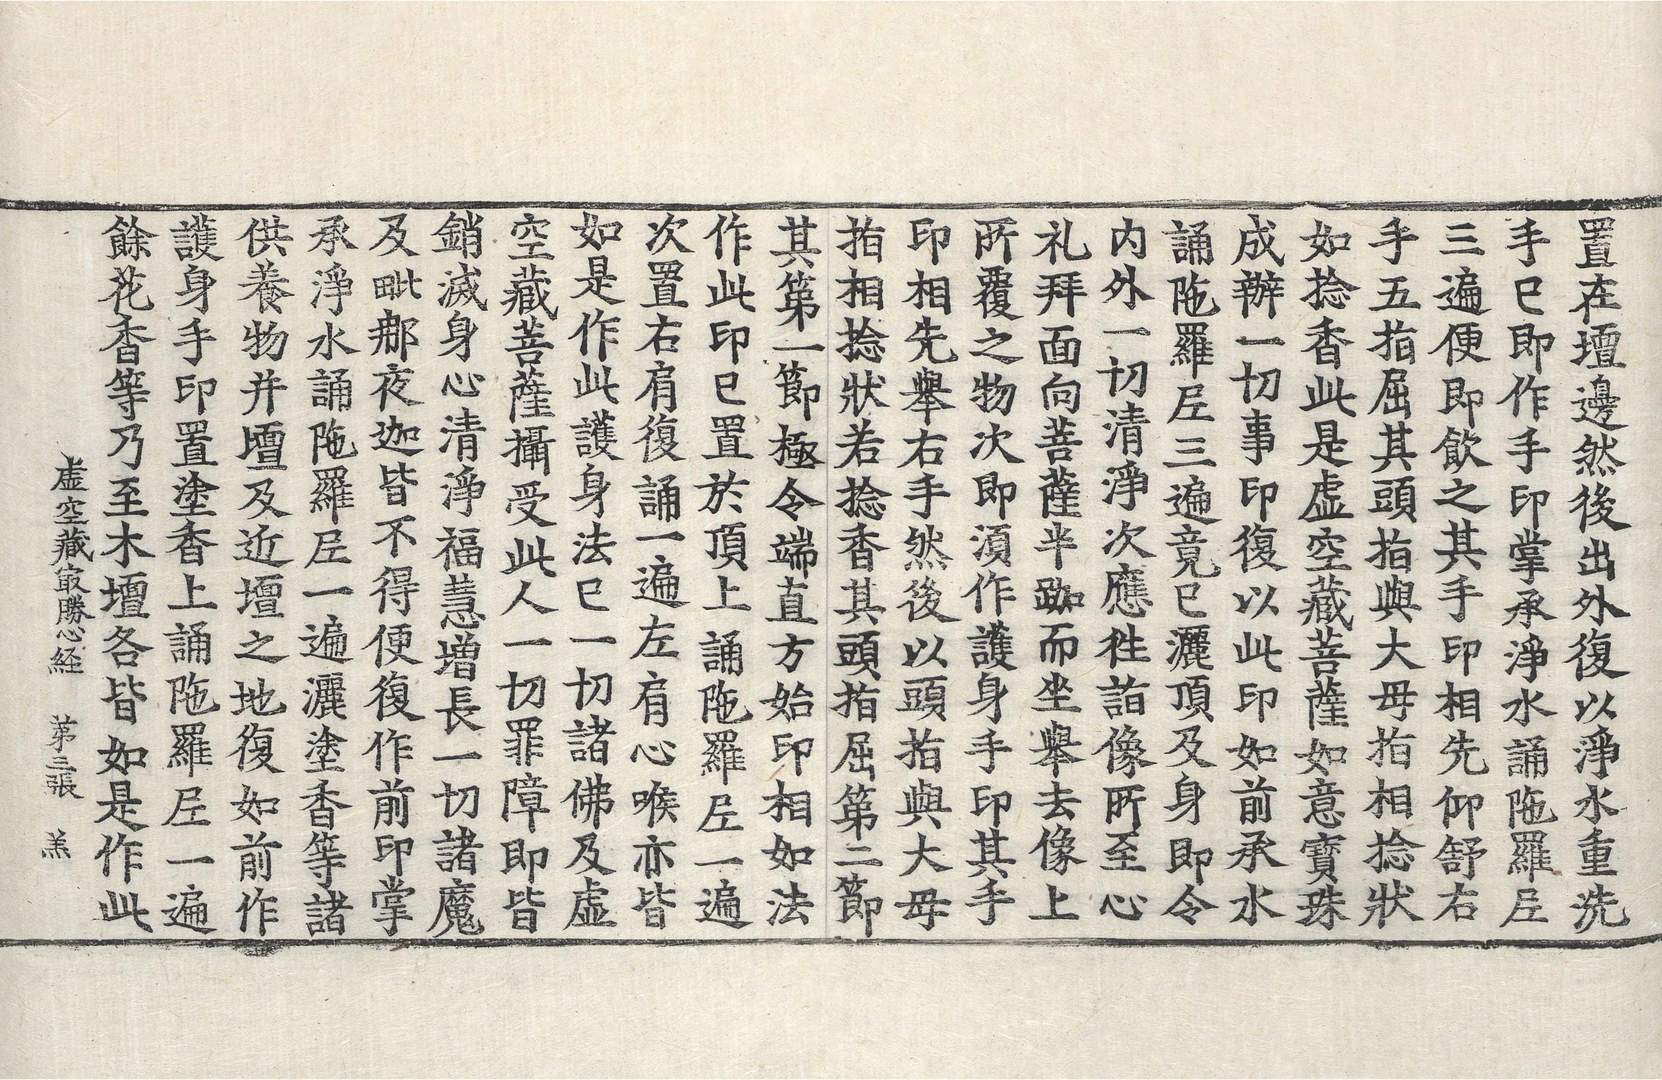 置在壇邊然後出外復以淨水重洗
手已即作手印掌承淨水誦陁羅𡰱
三遍便即飲之其手印相先仰舒右
手五指屈其頭指與大母指相捻狀
如捻香此是虛空藏菩薩如意寶珠
成辦一切事印復以此印如前承水
誦陁羅𡰱三遍竟已灑頂及身即令
內外一切清淨次應往詣像所至心
礼拜面向菩薩半跏而坐舉去像上
所覆之物次即湏作護身手印其手
印相先舉右手然後以頭指與大母
指相捻狀若捻香其頭指屈第二節
其第一節極令端直方始印相如法
作此印已置於頂上誦陁羅𡰱一遍
次置右肩復誦一遍左肩心喉亦皆
如是作此護身法已一切諸佛及虛
空藏菩薩攝受此人一切罪障即皆
銷滅身心清淨福慧增長一切諸魔
及毗那夜迦皆不得便復作前印掌
承淨水誦陁羅𡰱一遍灑塗香等諸
供養物并壇及近壇之地復如前作
護身手印置塗香上誦陁羅𡰱一遍
餘花香等乃至木壇各皆如是作此
虛空藏㝡勝心経　苐三張　羔